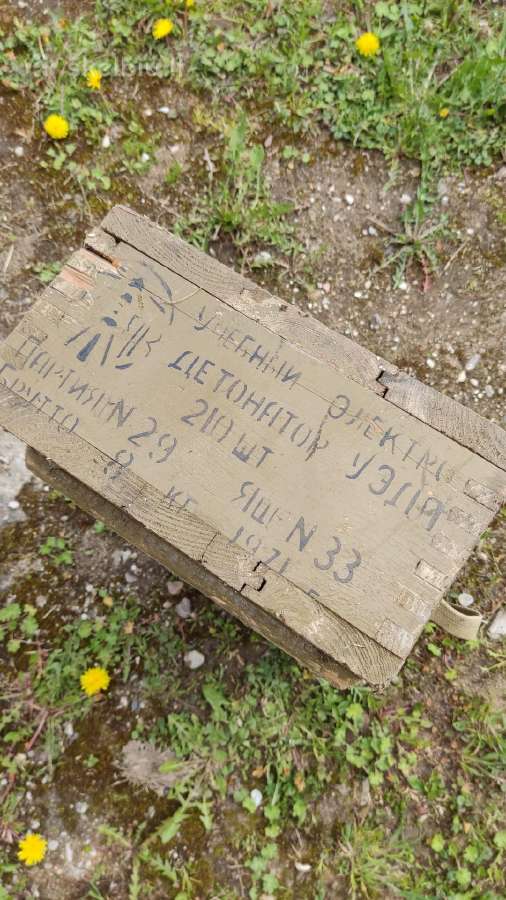 УЧЕБНЫЙ ЭЛЕКТРО
ДЕТОНАТОР УЭДА
210 ШТ
ПАРТИЯ N 29 ЯЩ N 33
БРУТТО 8 КГ 1971 Г